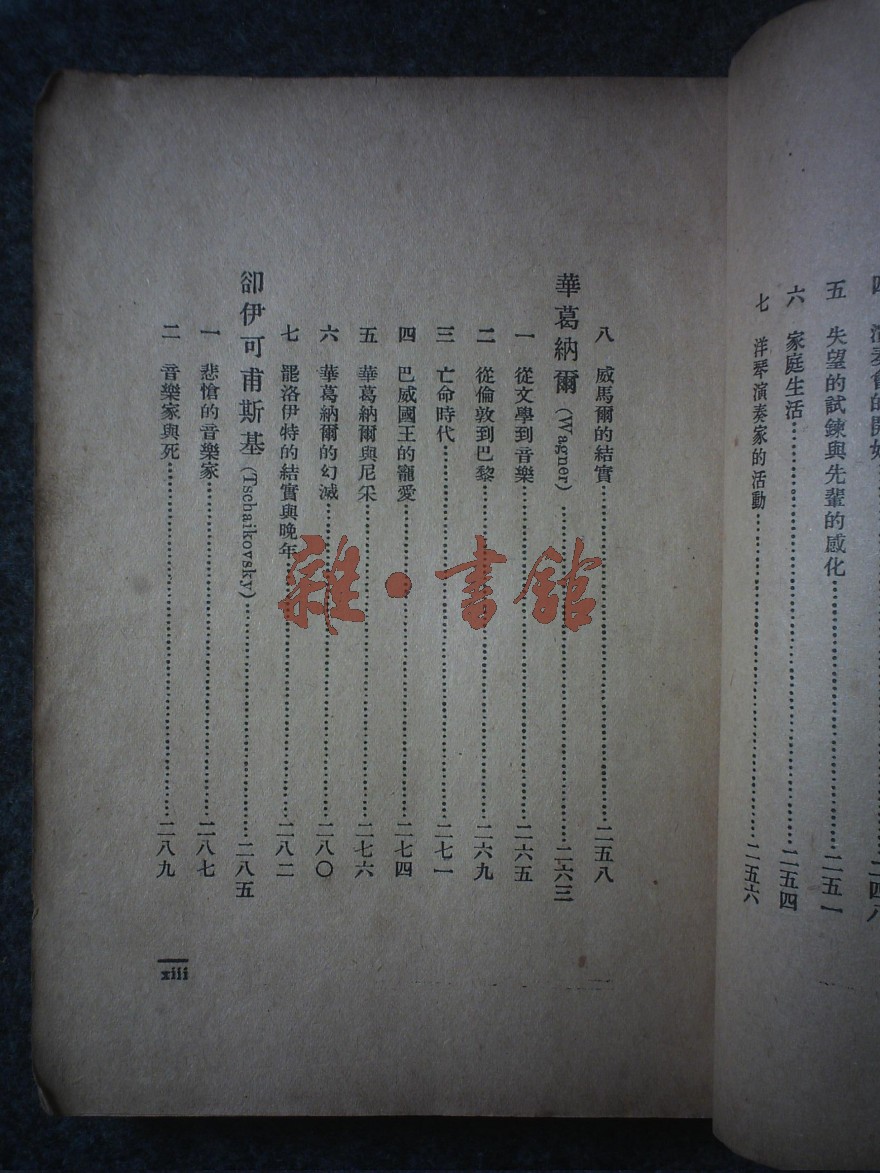 五　失望的試鍊與先輩的感化……二五一
六　家庭生活……二五四
七　洋琴演奏家的活動……二五六
八　威馬爾的結實……二五八
華葛納爾 (Wagner)……二六三
一　從文學到音樂……二六五
二　從倫敦到巴黎……二六九
三　亡命時代……二七一
四　巴威國王的寵愛……二七四
五　華葛納爾與尼采……二七六
六　華葛納爾的幻滅……二八〇
七　罷洛伊特的結實與晚年……二八二
卻伊可甫斯基 (Tschaikovsky)……二八五
一　悲愴的音樂家……二八七
二　音樂家與死……二八九
xiii
雜·書館